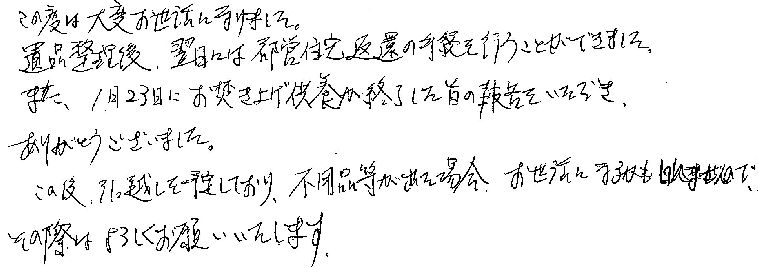 この度は大変お世話になりました。
遺品整理後、翌日には都営住宅返還の手続を行うことができました。
また、1月23日にお焚き上げ供養が終了した旨の報告をいただき、
ありがとうございました。
この後、引越しを予定しており、不用品等が出た場合、お世話になるかもしれませんので、
その際はよろしくお願いいたします。